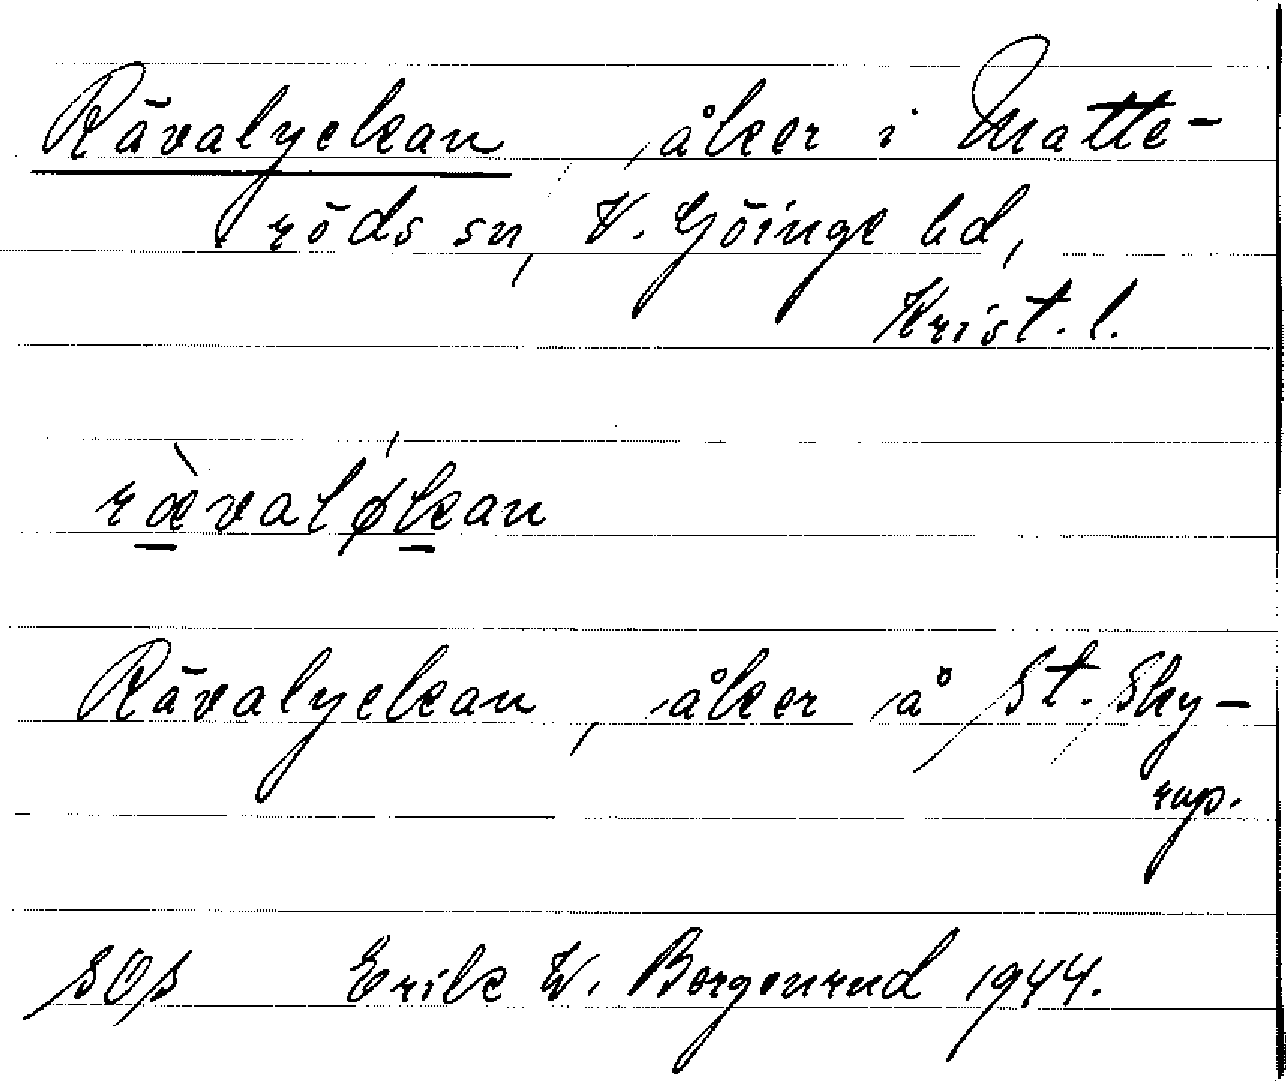 Rävalyckan, åker i Matte-
röds sn, V. Göinge hd,
Krist. l.
ræ̀valǿkan
Rävalyckan, åker å St. Sky-
rup.
SOS Erik W. Borgenrud 1944.